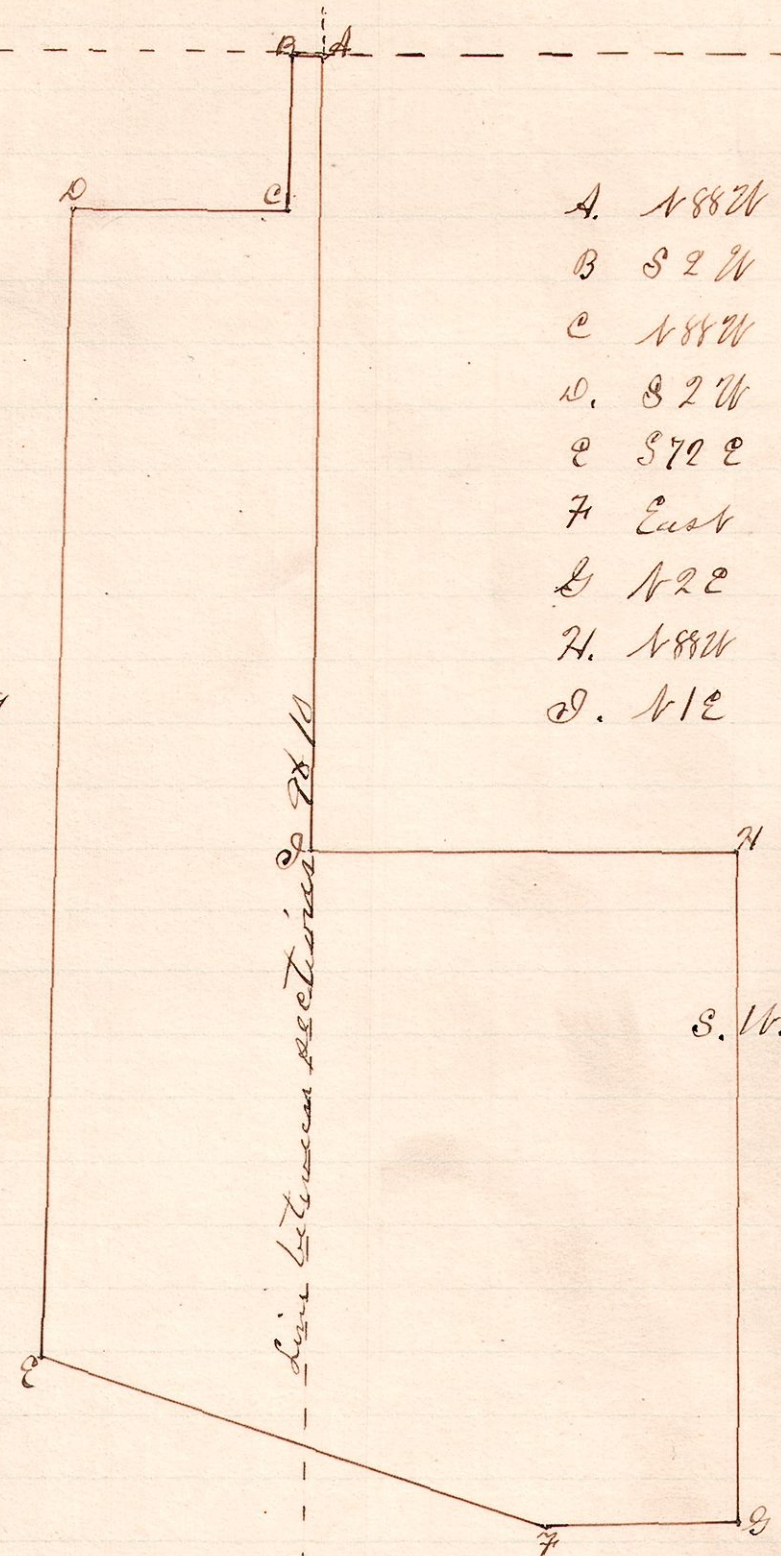 B A
D C
A. N88W
B S2W
C N88W
D. S2W
E S72E
F East
G N2E
H. N88W
I. N1E
Line between sections 9 & 10
I H
S. W.
E
F G